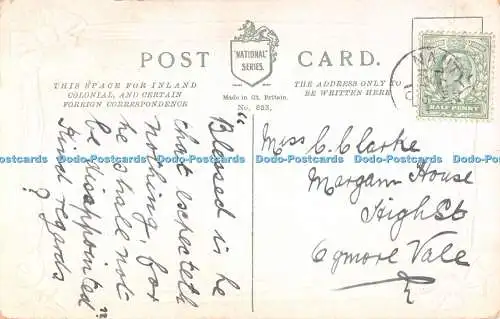 POST CARD.
"NATIONAL"
SERIES.
THIS SPACE FOR INLAND
COLONIAL, AND CERTAIN
FOREIGN CORRESPONDENCE
Made in Gt. Britain.
No. 883.
THE ADDRESS ONLY TO
BE WRITTEN HERE
HALF PENNY
"Blessed is he
that expecteth
nothing, for
he shall not
be disappointed"
Kind regards
?
Miss C. Clarke
Margam House
High St
Ogmore Vale
Postcards Postcards Postcards Postcards Postcards Postcards